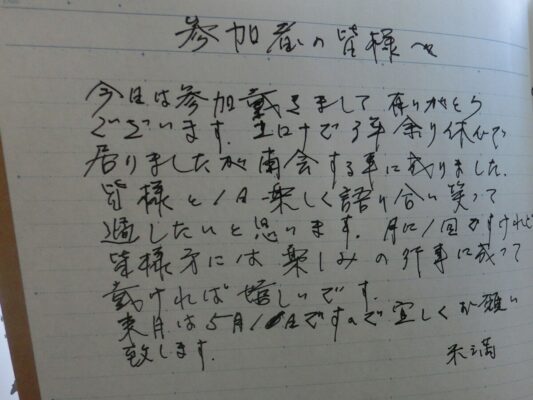 参加者の皆様へ
今日は参加戴きまして有りがとう
ございます。コロナで3年余り休んで
居りましたが再会する事に成りました。
皆様と1日楽しく語り合い笑って
過したいと思います。月に1回ですけれど
皆様方には楽しみの行事に成って
戴ければ嬉しいです。
来月は5月1日ですので宜しくお願い
致します。